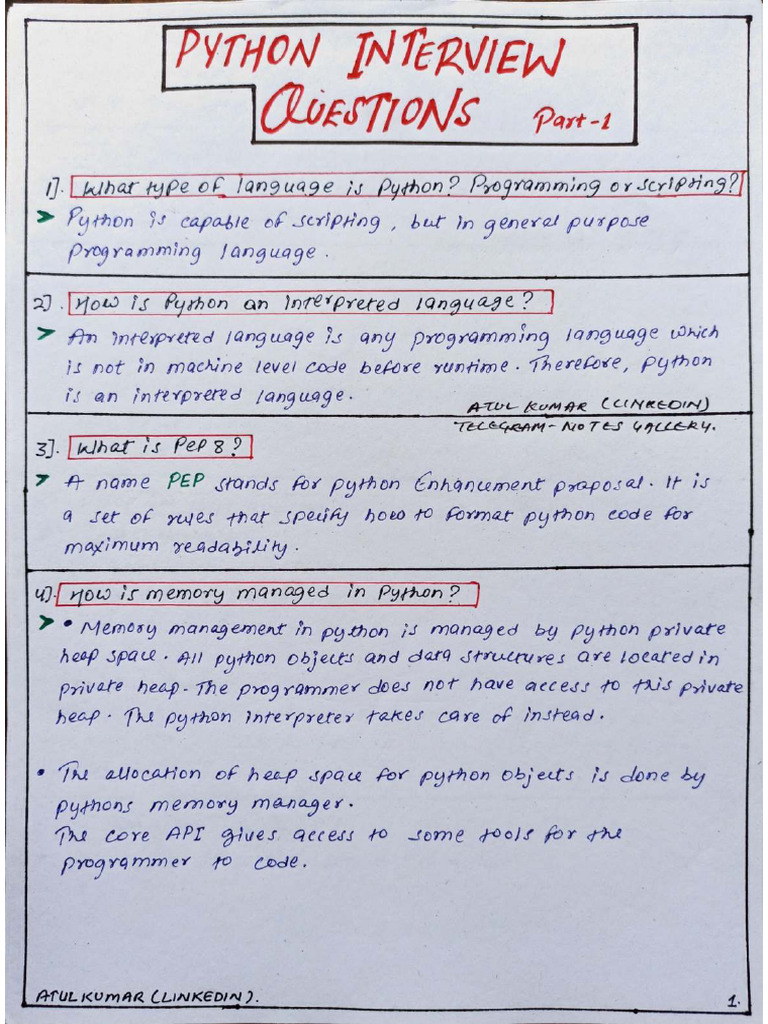 PYTHON INTERVIEW
QUESTIONS Part-1
1]. What type of language is Python? Programming or scripting?
➤ Python is capable of scripting, but in general purpose
programming language.
2]. How is Python an interpreted language?
➤ An interpreted language is any programming language which
is not in machine level code before runtime. Therefore, python
is an interpreted language.
ATUL KUMAR (LINKEDIN)
TELEGRAM-NOTES GALLERY.
3]. What is PEP 8?
➤ A name PEP stands for python Enhancement praposal. It is
a set of rules that specify how to format python code for
maximum readability.
4]. How is memory managed in Python?
➤ • Memory management in python is managed by python private
heap space. All python objects and data structures are located in
private heap. The programmer does not have access to this private
heap. The python interpreter takes care of instead.
• The allocation of heap space for python objects is done by
pythons memory manager.
The core API gives access to some tools for the
programmer to code.
ATUL KUMAR (LINKEDIN). 1.